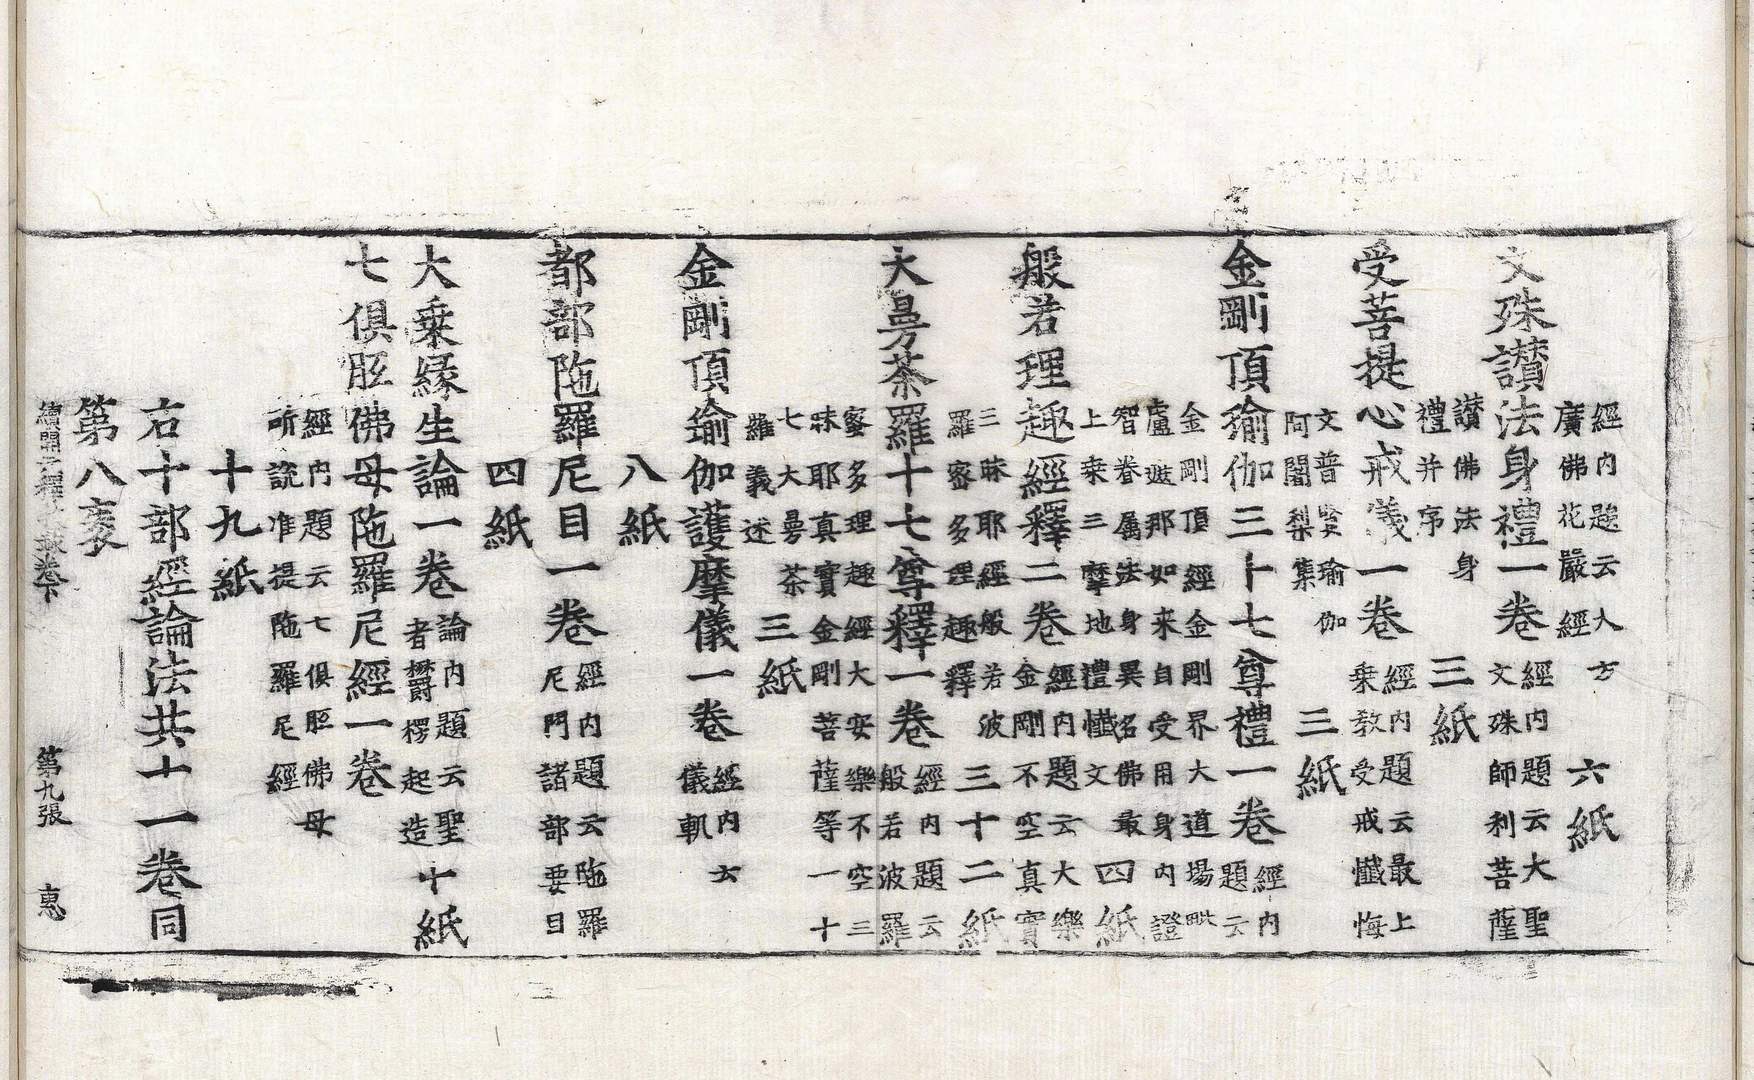 經內題云大方
廣佛花嚴經
六紙
文殊讃法身禮一卷
經內題云大聖
文殊師利菩薩
讃佛法身
禮并序
三紙
受菩提心戒儀一卷
經內題云最上
乗教受戒懺悔
文普賢瑜伽
阿闍梨集
三紙
金剛頂瑜伽三十七尊禮一卷
經內
題云
金剛頂經金剛界大道場毗
盧遮那如来自受用身內證
智眷属法身異名佛最
上乗三摩地禮懺文
四紙
般若理趣經釋二卷
經內題云大樂
金剛不空真實
三昧耶經般若波
羅蜜多理趣釋
三十二紙
大曼荼羅十七尊釋一卷
經內題云
般若波羅
蜜多理趣經大安樂不空三
昧耶真實金剛菩薩等一十
七大曼荼
羅義述
三紙
金剛頂瑜伽護摩儀一卷
經內云
儀軌
八紙
都部陁羅尼目一卷
經內題云陁羅
尼門諸部要目
四紙
大乗緣生論一卷
論內題云聖
者欝楞起造
十紙
七俱胝佛母陁羅尼經一卷
經內題云七俱胝佛母
所說准提陁羅尼經
十九紙
右十部經論法共十一卷同
第八袠
續開元釋教錄卷下 第九張 惠